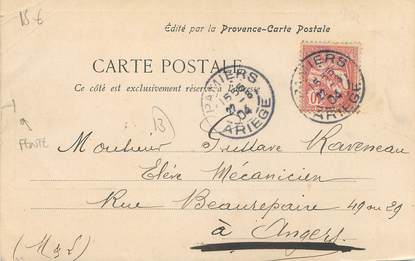 15 €
Édité par la Provence-Carte Postale
CARTE POSTALE
Ce côté est exclusivement réservé à l'adresse
PAMIERS
ARIÈGE
04
PAMIERS
ARIÈGE
04
10
13
9
Monsieur Gustave Raveneau
Elève Mécanicien
Rue Beaurepaire 49 ou 39
à Angers
(M & L)